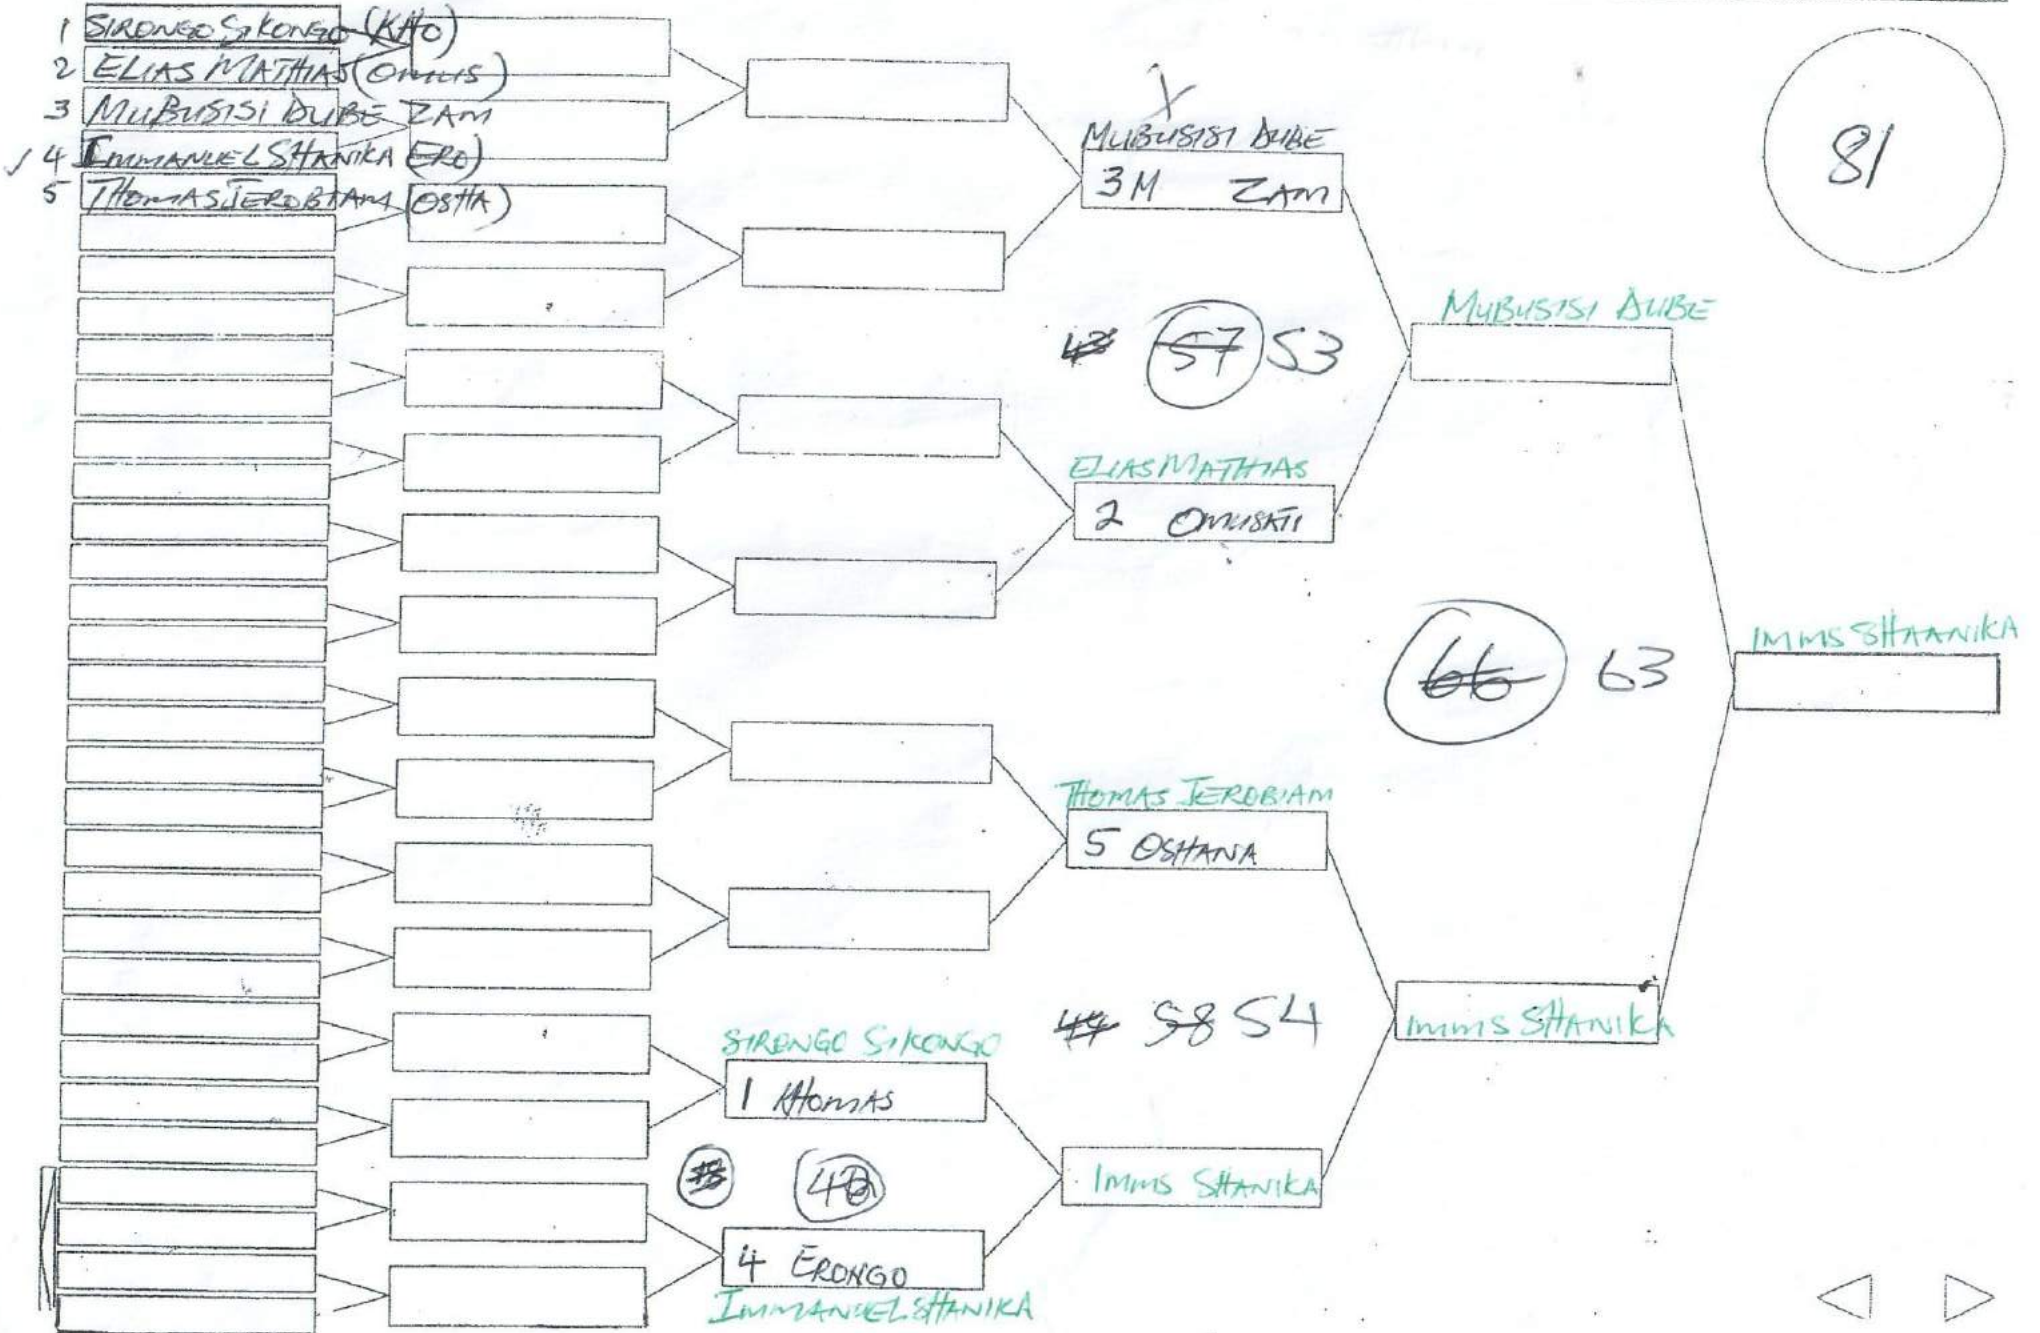 1 SIRONGO SIKONGO (KHO)
2 ELIAS MATHIAS (OMUS)
3 MUBUSISI DUBE ZAM
✓ 4 IMMANUEL SHANIKA (ERO)
5 THOMAS JEROBIAM (OSHA)
81
X
MUBUSISI DUBE
3M ZAM
MUBUSISI DUBE
57 53
ELIAS MATHIAS
2 OMUSATI
66 63
IMMS SHAANIKA
THOMAS JEROBIAM
5 OSHANA
44 58 54
IMMS SHANIKA
SIRONGO SIKONGO
1 KHOMAS
IMMS SHANIKA
4 ERONGO
IMMANUEL SHANIKA